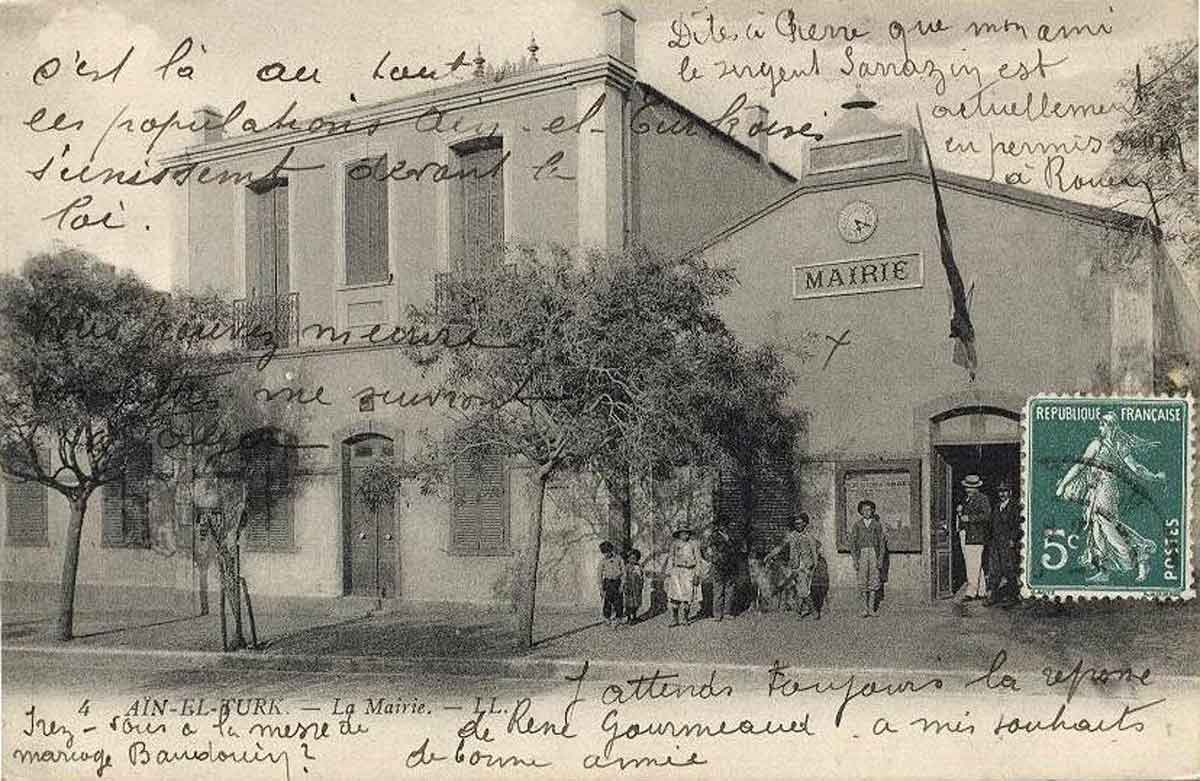 c'est là au tout
les populations Ain-el-Turkoises
s'unissent devant la
loi.
Dites à Pierre que mon ami
le sergent Sarrazin est
actuellement
en permission
à Rouen
MAIRIE
Vous pouvez m'écrire
lettres me suivront
REPUBLIQUE FRANÇAISE
5c
POSTES
4 AÏN-EL-TURK. — La Mairie. — LL.
J'attends toujours la reponse
de René Gourmeaud a mes souhaits
de bonne année
Irez-vous à la messe de
mariage Baudouin?